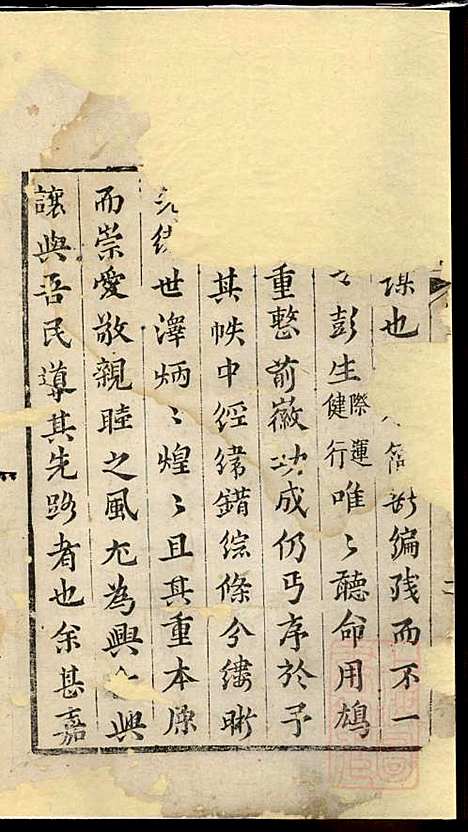 也 編殘而不一
彭生際運健行唯〻聽命用鳩
重整前徽功成仍丐序於予
其帙中經緯錯綜條分縷晰
世澤炳〻煌〻且其重本源
而崇愛敬親睦之風尤為興 興
讓與吾民導其先路者也余甚嘉